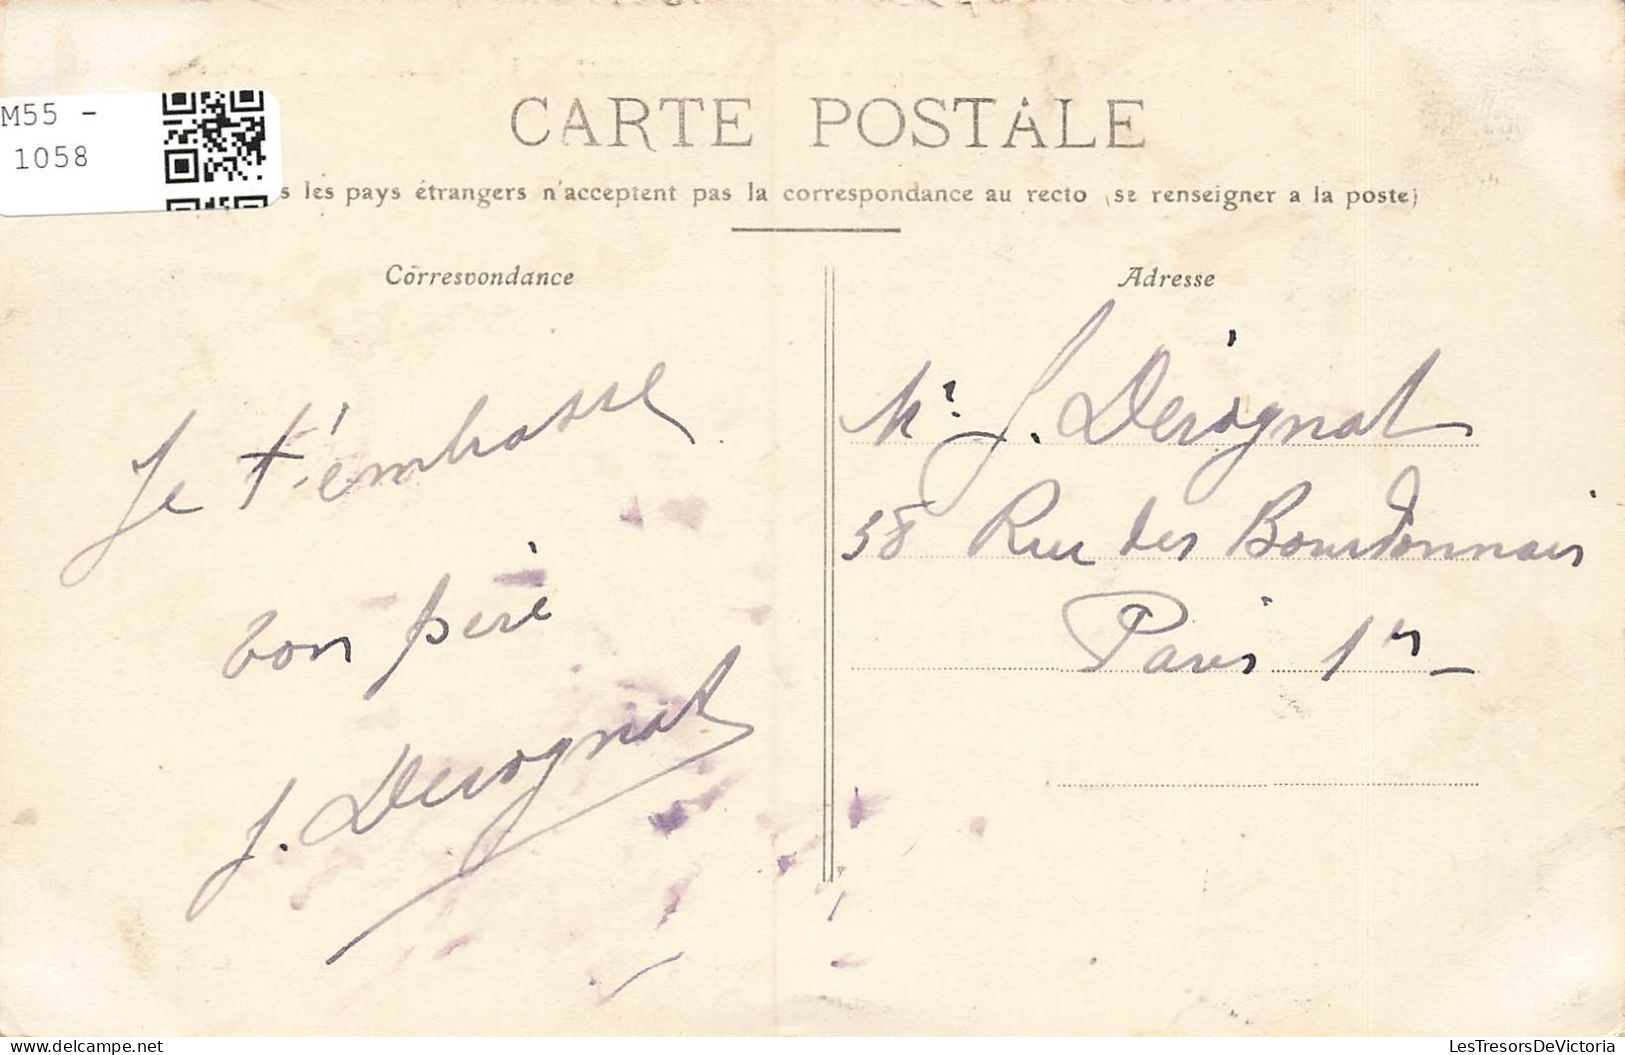 M55 -
1058
CARTE POSTALE
les pays étrangers n'acceptent pas la correspondance au recto (se renseigner a la poste)
Correspondance
Je t'embrasse
bon père
J. Derognat
Adresse
Mr. J. Derognat
38 Rue des Bourdonnais
Paris 1er
LesTresorsDeVictoria
www.delcampe.net